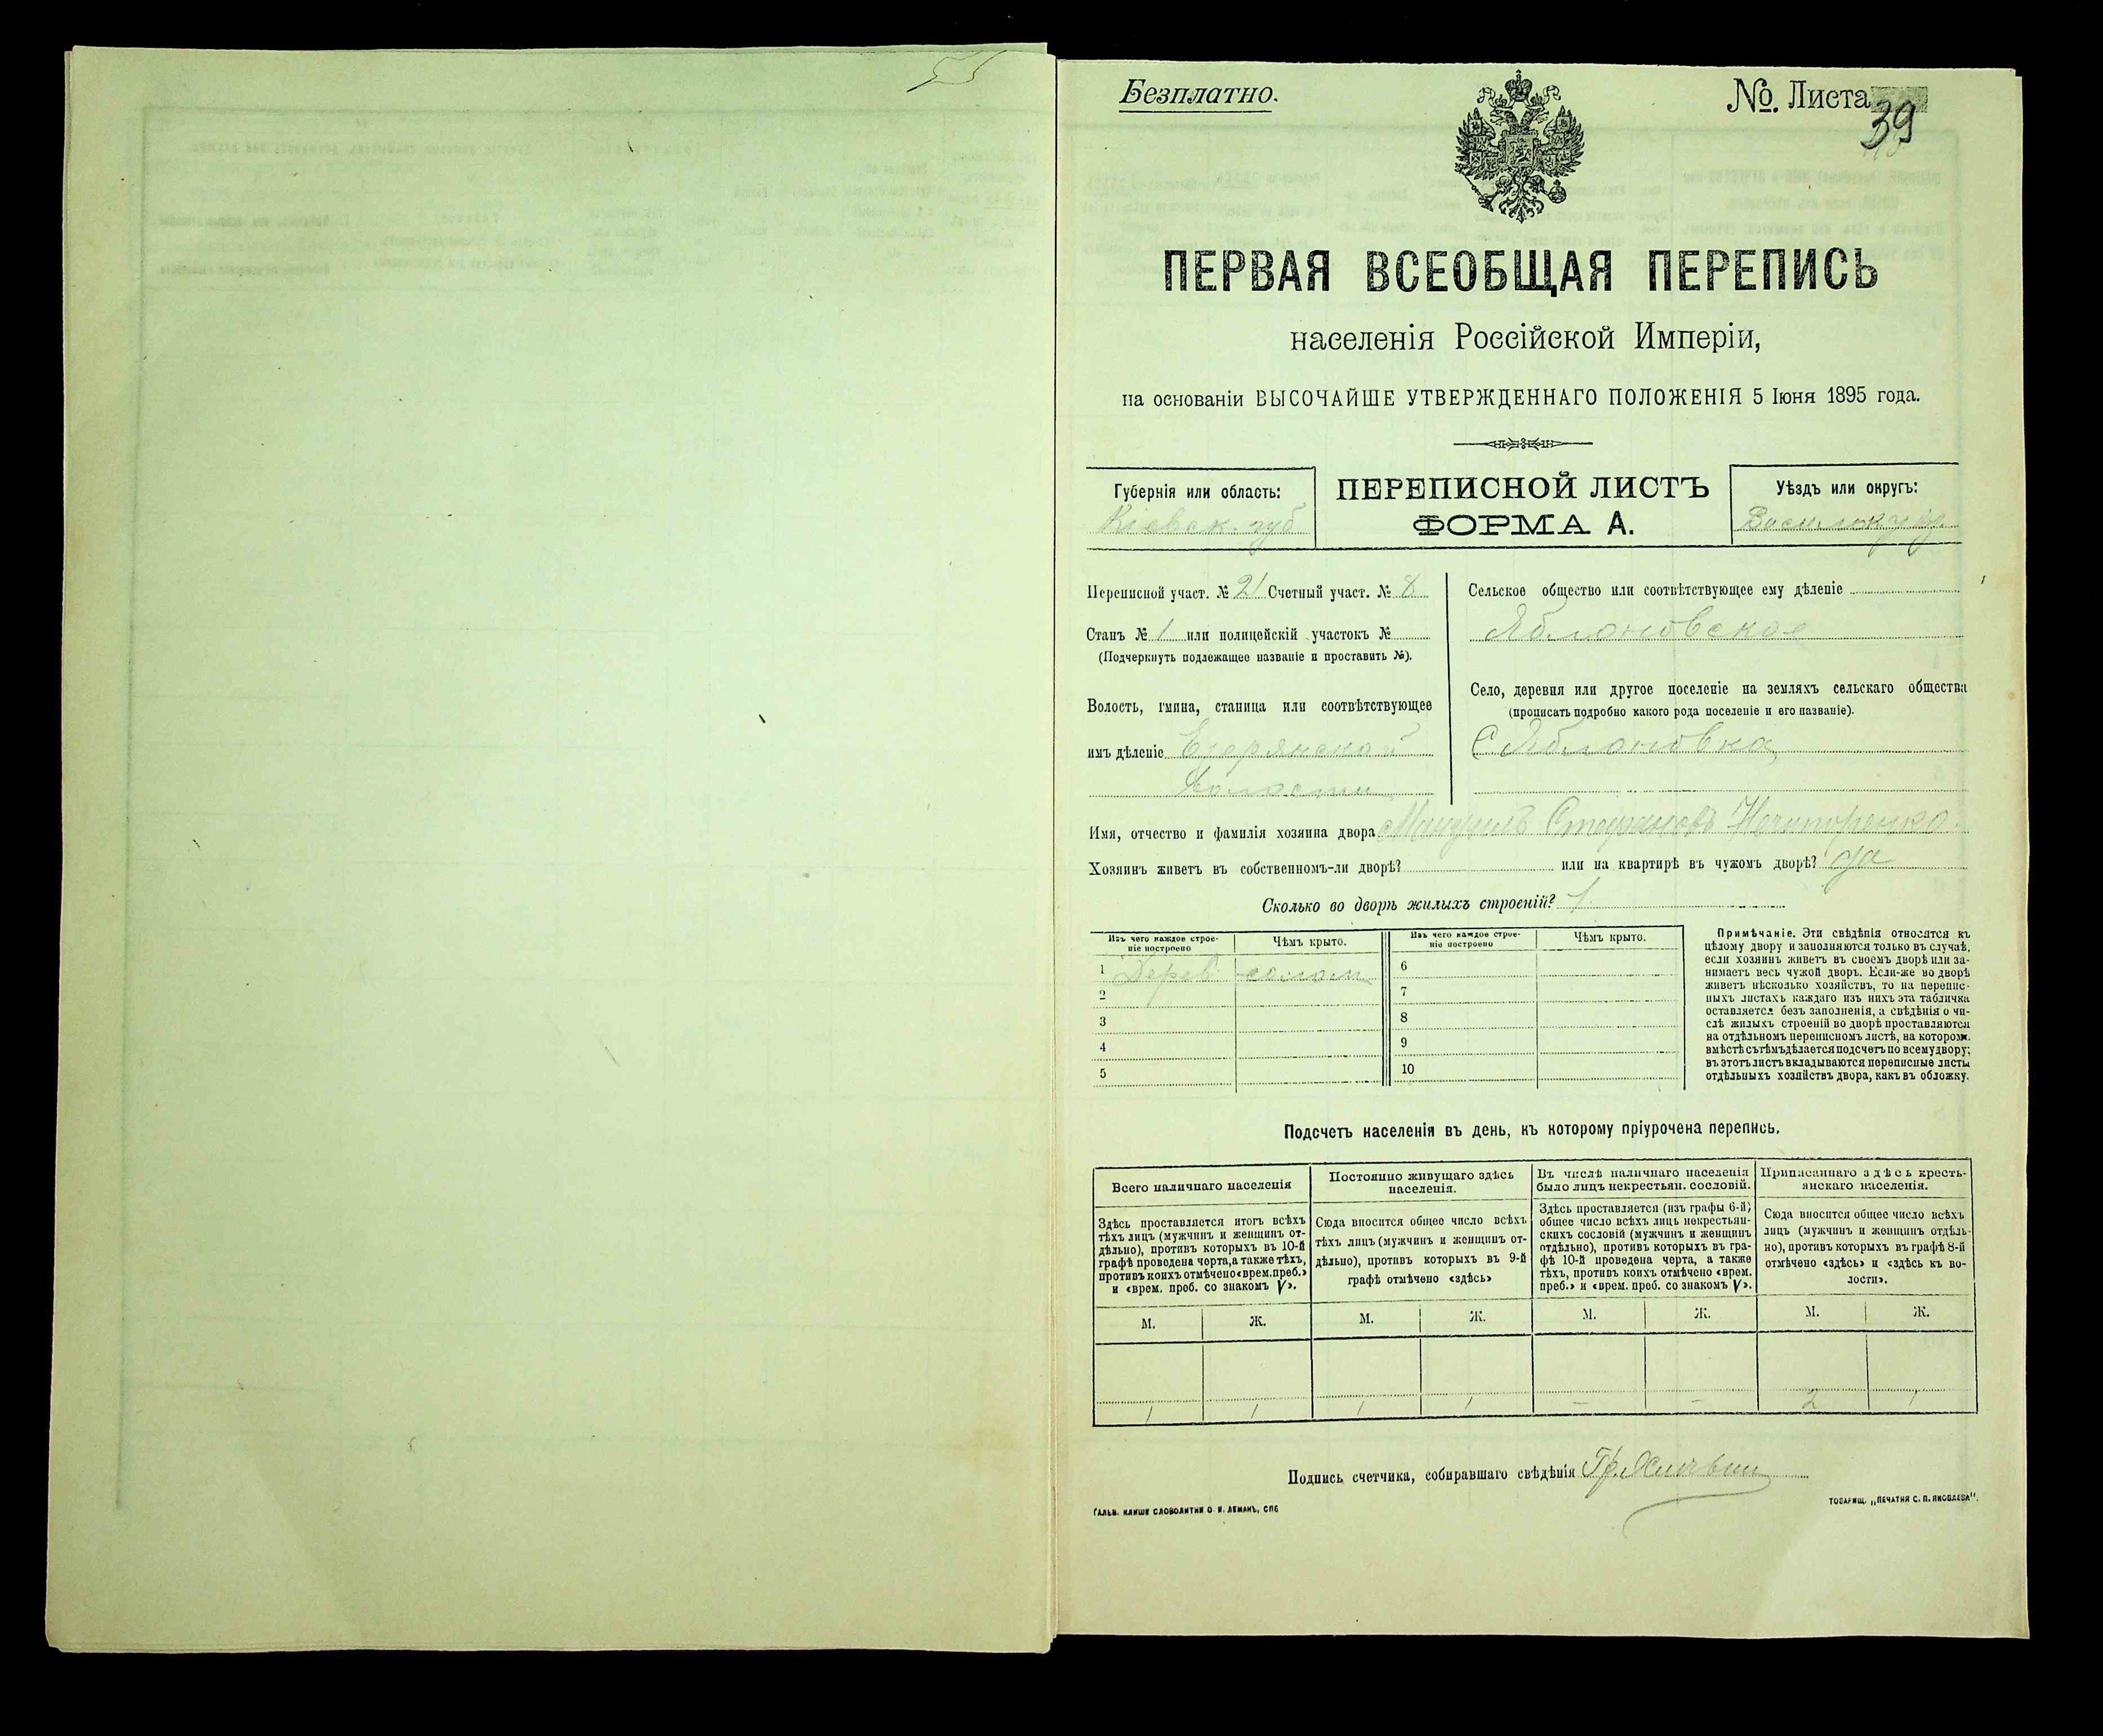 Безплатно.
№. Листа 39
ПЕРВАЯ ВСЕОБЩАЯ ПЕРЕПИСЬ
населенія Россійской Имперіи,
на основаніи ВЫСОЧАЙШЕ УТВЕРЖДЕННАГО ПОЛОЖЕНІЯ 5 Іюня 1895 года.
Губернія или область:
Кіевск. губ
ПЕРЕПИСНОЙ ЛИСТЪ
ФОРМА А.
Уѣздъ или округъ:
Переписной участ. № 21 Счетный участ. № 8
Станъ № 1 или полицейскій участокъ №
(Подчеркнуть подлежащее названіе и проставить №).
Волость, гмина, станица или соотвѣтствующее
имъ дѣленіе
Волости
Сельское общество или соотвѣтствующее ему дѣленіе
Яблоновское
Село, деревня или другое поселеніе на земляхъ сельскаго общества
(прописать подробно какого рода поселеніе и его названіе).
С Яблоновка
Имя, отчество и фамилія хозяина двора Стефановъ Нечипоренко
Хозяинъ живетъ въ собственномъ-ли дворѣ? или на квартирѣ въ чужомъ дворѣ? да
Сколько во дворѣ жилыхъ строеній? 1
Изъ чего каждое строе-
ніе построено
Чѣмъ крыто.
1 Дерев солом
2
3
4
5
Изъ чего каждое строе-
ніе построено
Чѣмъ крыто.
6
7
8
9
10
Примѣчаніе. Эти свѣдѣнія относятся къ
цѣлому двору и заполняются только въ случаѣ,
если хозяинъ живетъ въ своемъ дворѣ или за-
нимаетъ весь чужой дворъ. Если-же во дворѣ
живетъ нѣсколько хозяйствъ, то на перепис-
ныхъ листахъ каждаго изъ нихъ эта табличка
оставляется безъ заполненія, а свѣдѣнія о чи-
слѣ жилыхъ строеній во дворѣ проставляются
на отдѣльномъ переписномъ листѣ, на которомъ
вмѣстѣ съ тѣмъ дѣлается подсчетъ по всему двору;
въ этотъ листъ вкладываются переписные листы
отдѣльныхъ хозяйствъ двора, какъ въ обложку.
Подсчетъ населенія въ день, къ которому пріурочена перепись.
Всего наличнаго населенія
Здѣсь проставляется итогъ всѣхъ
тѣхъ лицъ (мужчинъ и женщинъ от-
дѣльно), противъ которыхъ въ 10-й
графѣ проведена черта, а также тѣхъ,
противъ коихъ отмѣчено «врем. преб.»
и «врем. преб. со знакомъ V».
Постоянно живущаго здѣсь
населенія.
Сюда вносится общее число всѣхъ
тѣхъ лицъ (мужчинъ и женщинъ от-
дѣльно), противъ которыхъ въ 9-й
графѣ отмѣчено «здѣсь»
Въ числѣ наличнаго населенія
было лицъ некрестьян. сословій.
Здѣсь проставляется (изъ графы 6-й)
общее число всѣхъ лицъ некрестьян-
скихъ сословій (мужчинъ и женщинъ
отдѣльно), противъ которыхъ въ гра-
фѣ 10-й проведена черта, а также
тѣхъ, противъ коихъ отмѣчено «врем.
преб.» и «врем. преб. со знакомъ V».
Приписаннаго здѣсь кресть-
янскаго населенія.
Сюда вносится общее число всѣхъ
лицъ (мужчинъ и женщинъ отдѣль-
но), противъ которыхъ въ графѣ 8-й
отмѣчено «здѣсь» и «здѣсь къ во-
лости».
М. Ж. М. Ж. М. Ж. М. Ж.
1 1 1 1 - - 2 1
Подпись счетчика, собиравшаго свѣдѣнія
ГАЛЬВ. КЛИШЕ СЛОВОЛИТНИ О. И. ЛЕМАНЪ, СПБ
ТОВАРИЩ. „ПЕЧАТНЯ С. П. ЯКОВЛЕВА".